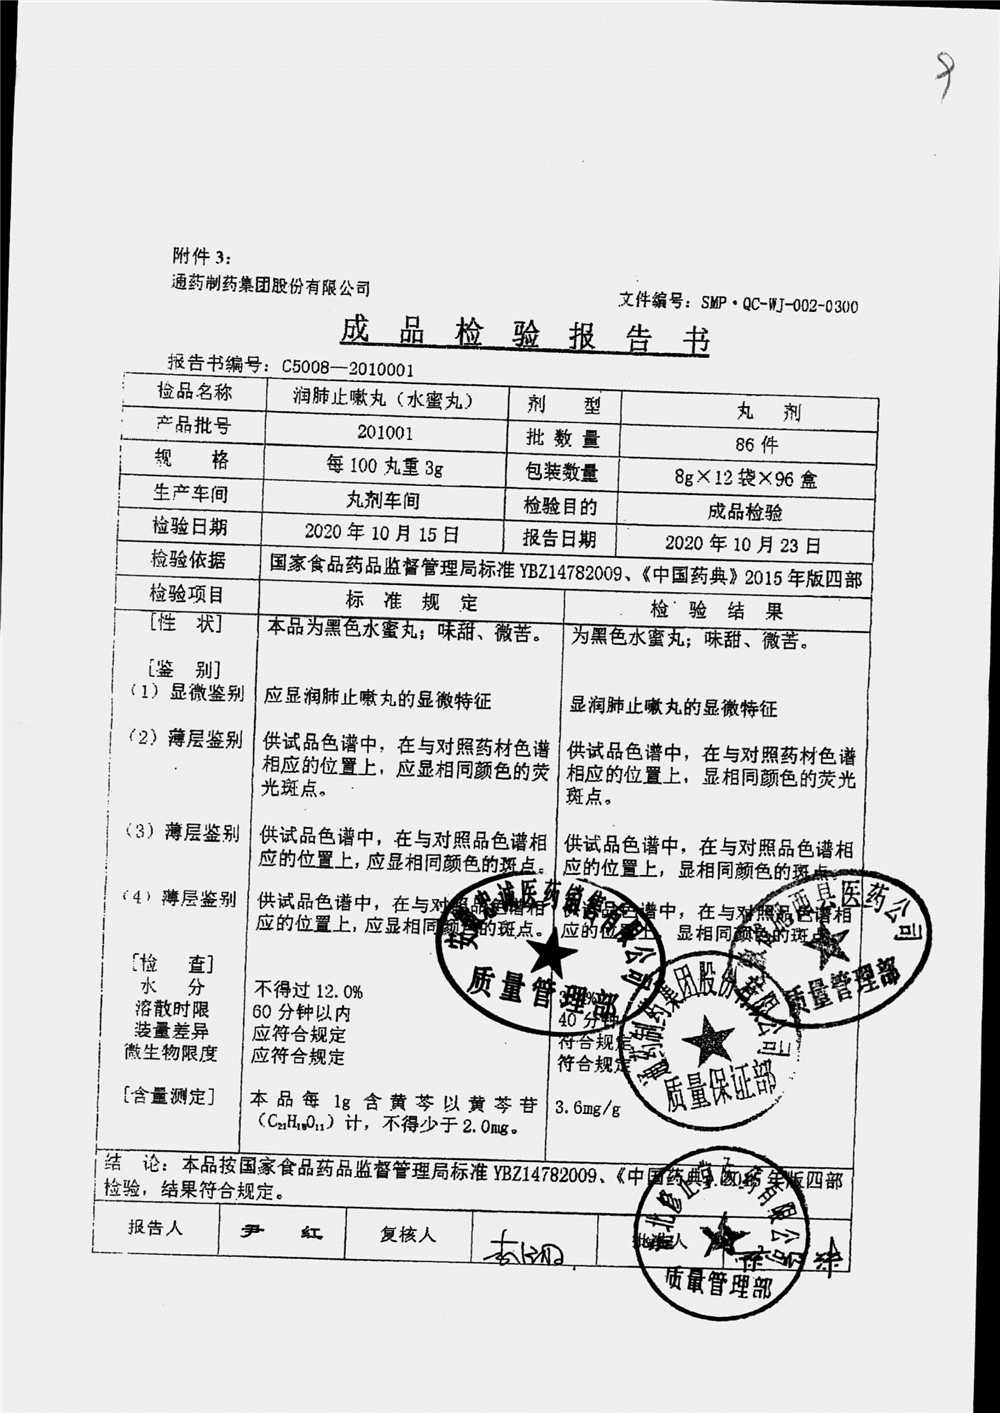 附件 3：
通药制药集团股份有限公司
文件编号：SMP·QC-WJ-002-0300
成品检验报告书
报告书编号：C5008—2010001
检品名称 润肺止嗽丸（水蜜丸） 剂 型 丸 剂
产品批号 201001 批 数 量 86 件
规 格 每 100 丸重 3g 包装数量 8g×12 袋×96 盒
生产车间 丸剂车间 检验目的 成品检验
检验日期 2020 年 10 月 15 日 报告日期 2020 年 10 月 23 日
检验依据 国家食品药品监督管理局标准 YBZ14782009、《中国药典》2015 年版四部
检验项目 标 准 规 定 检 验 结 果
[性 状] 本品为黑色水蜜丸；味甜、微苦。 为黑色水蜜丸；味甜、微苦。
[鉴 别]
（1）显微鉴别 应显润肺止嗽丸的显微特征 显润肺止嗽丸的显微特征
（2）薄层鉴别 供试品色谱中，在与对照药材色谱 供试品色谱中，在与对照药材色谱
相应的位置上，应显相同颜色的荧 相应的位置上，显相同颜色的荧光
光斑点。 斑点。
（3）薄层鉴别 供试品色谱中，在与对照品色谱相 供试品色谱中，在与对照品色谱相
应的位置上，应显相同颜色的斑点。 应的位置上，显相同颜色的斑点。
（4）薄层鉴别 供试品色谱中，在与对照品色谱相 供试品色谱中，在与对照品色谱相
应的位置上，应显相同颜色的斑点。 应的位置上，显相同颜色的斑点
[检 查]
水 分 不得过 12.0% %
溶散时限 60 分钟以内 40 分钟
装量差异 应符合规定 符合规定
微生物限度 应符合规定 符合规定
[含量测定] 本品每 1g 含黄芩以黄芩苷 3.6mg/g
（C₂₁H₁₈O₁₁）计，不得少于 2.0mg。
结 论：本品按国家食品药品监督管理局标准 YBZ14782009、《中国药典》2015 年版四部
检验，结果符合规定。
报告人 尹 红 复核人 批准人
诚医药销售有限公司
质量管理部
西县医药公司
质量管理部
通药制药集团股份有限公司
质量保证部
北修正堂医药有限公司
质量管理部